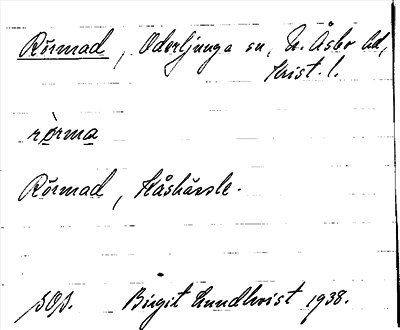 Rörmad, Oderljunga sn, N. Åsbo hd,
Krist. l.
rörma
Rörmad,
sop. Birgit Lundkvist 1938.